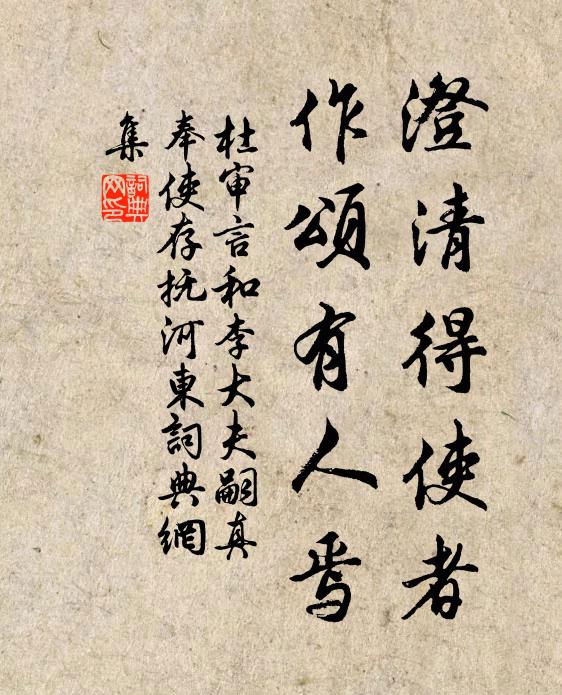 澄清得使者
作頌有人焉
杜审言和李大夫嗣真
奉使存抚河東詞典網
集
詞典
网印